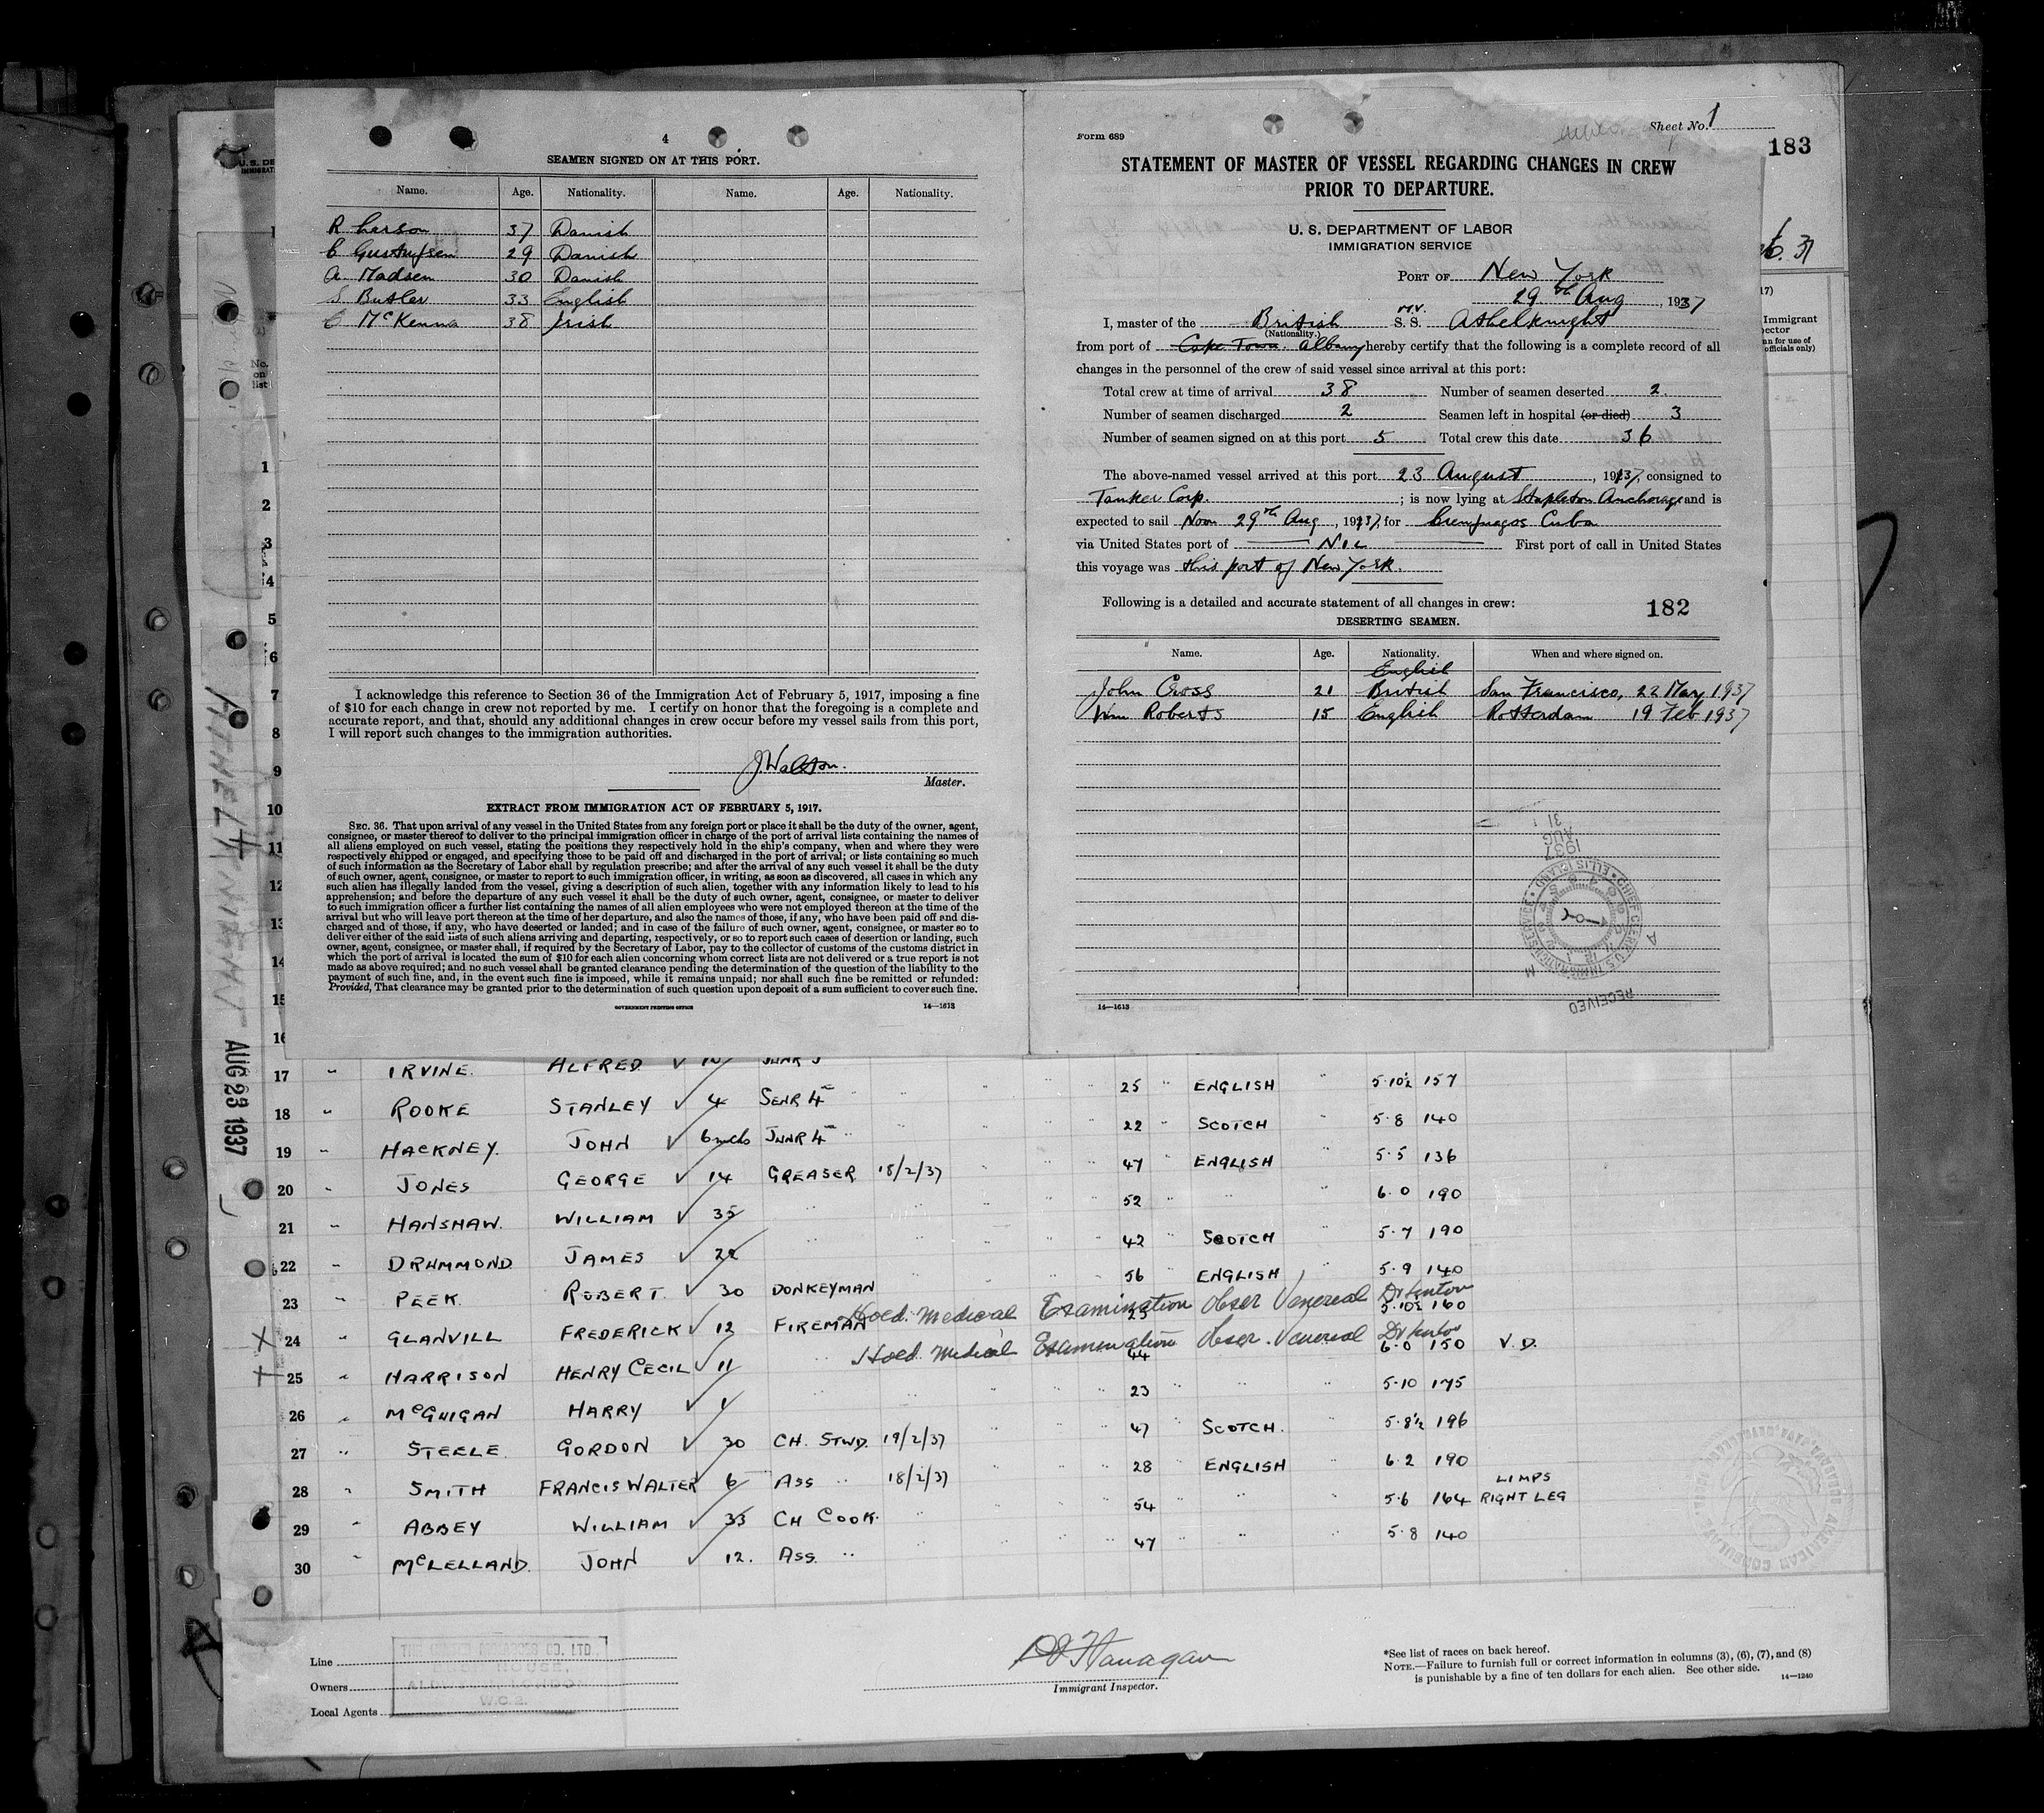 4
SEAMEN SIGNED ON AT THIS PORT.
Name. Age. Nationality. Name. Age. Nationality.
R Larson 37 Danish
C Gustafsen 29 Danish
A. Madsen 30 Danish
S. Butler 33 English
C McKenna 38 Irish
I acknowledge this reference to Section 36 of the Immigration Act of February 5, 1917, imposing a fine
of $10 for each change in crew not reported by me. I certify on honor that the foregoing is a complete and
accurate report, and that, should any additional changes in crew occur before my vessel sails from this port,
I will report such changes to the immigration authorities.
J Walston.
Master.
EXTRACT FROM IMMIGRATION ACT OF FEBRUARY 5, 1917.
SEC. 36. That upon arrival of any vessel in the United States from any foreign port or place it shall be the duty of the owner, agent,
consignee, or master thereof to deliver to the principal immigration officer in charge of the port of arrival lists containing the names of
all aliens employed on such vessel, stating the positions they respectively hold in the ship's company, when and where they were
respectively shipped or engaged, and specifying those to be paid off and discharged in the port of arrival; or lists containing so much
of such information as the Secretary of Labor shall by regulation prescribe; and after the arrival of any such vessel it shall be the duty
of such owner, agent, consignee, or master to report to such immigration officer, in writing, as soon as discovered, all cases in which any
such alien has illegally landed from the vessel, giving a description of such alien, together with any information likely to lead to his
apprehension; and before the departure of any such vessel it shall be the duty of such owner, agent, consignee, or master to deliver
to such immigration officer a further list containing the names of all alien employees who were not employed thereon at the time of the
arrival but who will leave port thereon at the time of her departure, and also the names of those, if any, who have been paid off and dis-
charged and of those, if any, who have deserted or landed; and in case of the failure of such owner, agent, consignee, or master so to
deliver either of the said lists of such aliens arriving and departing, respectively, or so to report such cases of desertion or landing, such
owner, agent, consignee, or master shall, if required by the Secretary of Labor, pay to the collector of customs of the customs district in
which the port of arrival is located the sum of $10 for each alien concerning whom correct lists are not delivered or a true report is not
made as above required; and no such vessel shall be granted clearance pending the determination of the question of the liability to the
payment of such fine, and, in the event such fine is imposed, while it remains unpaid; nor shall such fine be remitted or refunded:
Provided, That clearance may be granted prior to the determination of such question upon deposit of a sum sufficient to cover such fine.
GOVERNMENT PRINTING OFFICE 14—1613
Form 689
Sheet No. 1
183
STATEMENT OF MASTER OF VESSEL REGARDING CHANGES IN CREW
PRIOR TO DEPARTURE.
U. S. DEPARTMENT OF LABOR
IMMIGRATION SERVICE
PORT OF New York
29th Aug, 1937
I, master of the British M.V. S. S. Athelknight
(Nationality.)
from port of Cape Town. Albany hereby certify that the following is a complete record of all
changes in the personnel of the crew of said vessel since arrival at this port:
Total crew at time of arrival 38 Number of seamen deserted 2
Number of seamen discharged 2 Seamen left in hospital (or died) 3
Number of seamen signed on at this port 5 Total crew this date 36
The above-named vessel arrived at this port 23 August, 1937, consigned to
Tanker Corp. ; is now lying at Stapleton Anchorage and is
expected to sail Noon 29th Aug, 1937, for Cienfuagos Cuba
via United States port of Nil First port of call in United States
this voyage was this port of New York.
Following is a detailed and accurate statement of all changes in crew: 182
DESERTING SEAMEN.
Name. Age. Nationality. When and where signed on.
English
John Cross 21 British San Francisco, 22 May 1937
Wm Roberts 15 English Rotterdam 19 Feb 1937
RECEIVED
1937 AUG 31
CHIEF CLERK U.S. IMMIGRATION SERVICE ELLIS ISLAND
14—1613
AUG 23 1937
17 " IRVINE. ALFRED ✓
25 " ENGLISH " 5·10½ 157
18 " ROOKE STANLEY ✓ 4 SENR 4
22 " SCOTCH 5·8 140
19 " HACKNEY. JOHN ✓ 6 mths JUNR 4
47 " ENGLISH 5·5 136
20 " JONES GEORGE ✓ 14 GREASER 18/2/37
52 " " 6·0 190
21 " HANSHAW. WILLIAM ✓ 35
42 " SCOTCH 5·7 190
22 " DRUMMOND JAMES ✓ 22
56 " ENGLISH 5·9 140
23 " PEEK. ROBERT. ✓ 30 DONKEYMAN
Hold. Medical Examination Obser Venereal
25 5·10½ 160
24 " GLANVILL FREDERICK ✓ 12 FIREMAN
Hold Medical Examination Obser. Venereal
44 6·0 150 V.D.
25 " HARRISON HENRY CECIL ✓ 11
23 " " 5·10 175
26 " McGUIGAN HARRY ✓ 1
47 " SCOTCH. 5·8½ 196
27 " STEELE GORDON ✓ 30 CH. STWD. 19/2/37
28 " ENGLISH 6·2 190
28 " SMITH FRANCIS WALTER 6 ASS " 18/2/37
54 " " 5·6 164 LIMPS RIGHT LEG
29 " ABBEY WILLIAM ✓ 33 CH COOK.
47 " " 5·8 140
30 " McLELLAND. JOHN ✓ 12. ASS. "
Line
Owners
Local Agents
CO. LTD.
HOUSE,
LONDON
W.C.2.
Immigrant Inspector.
*See list of races on back hereof.
NOTE.—Failure to furnish full or correct information in columns (3), (6), (7), and (8)
is punishable by a fine of ten dollars for each alien. See other side. 14—1240
AMERICAN CONSULATE